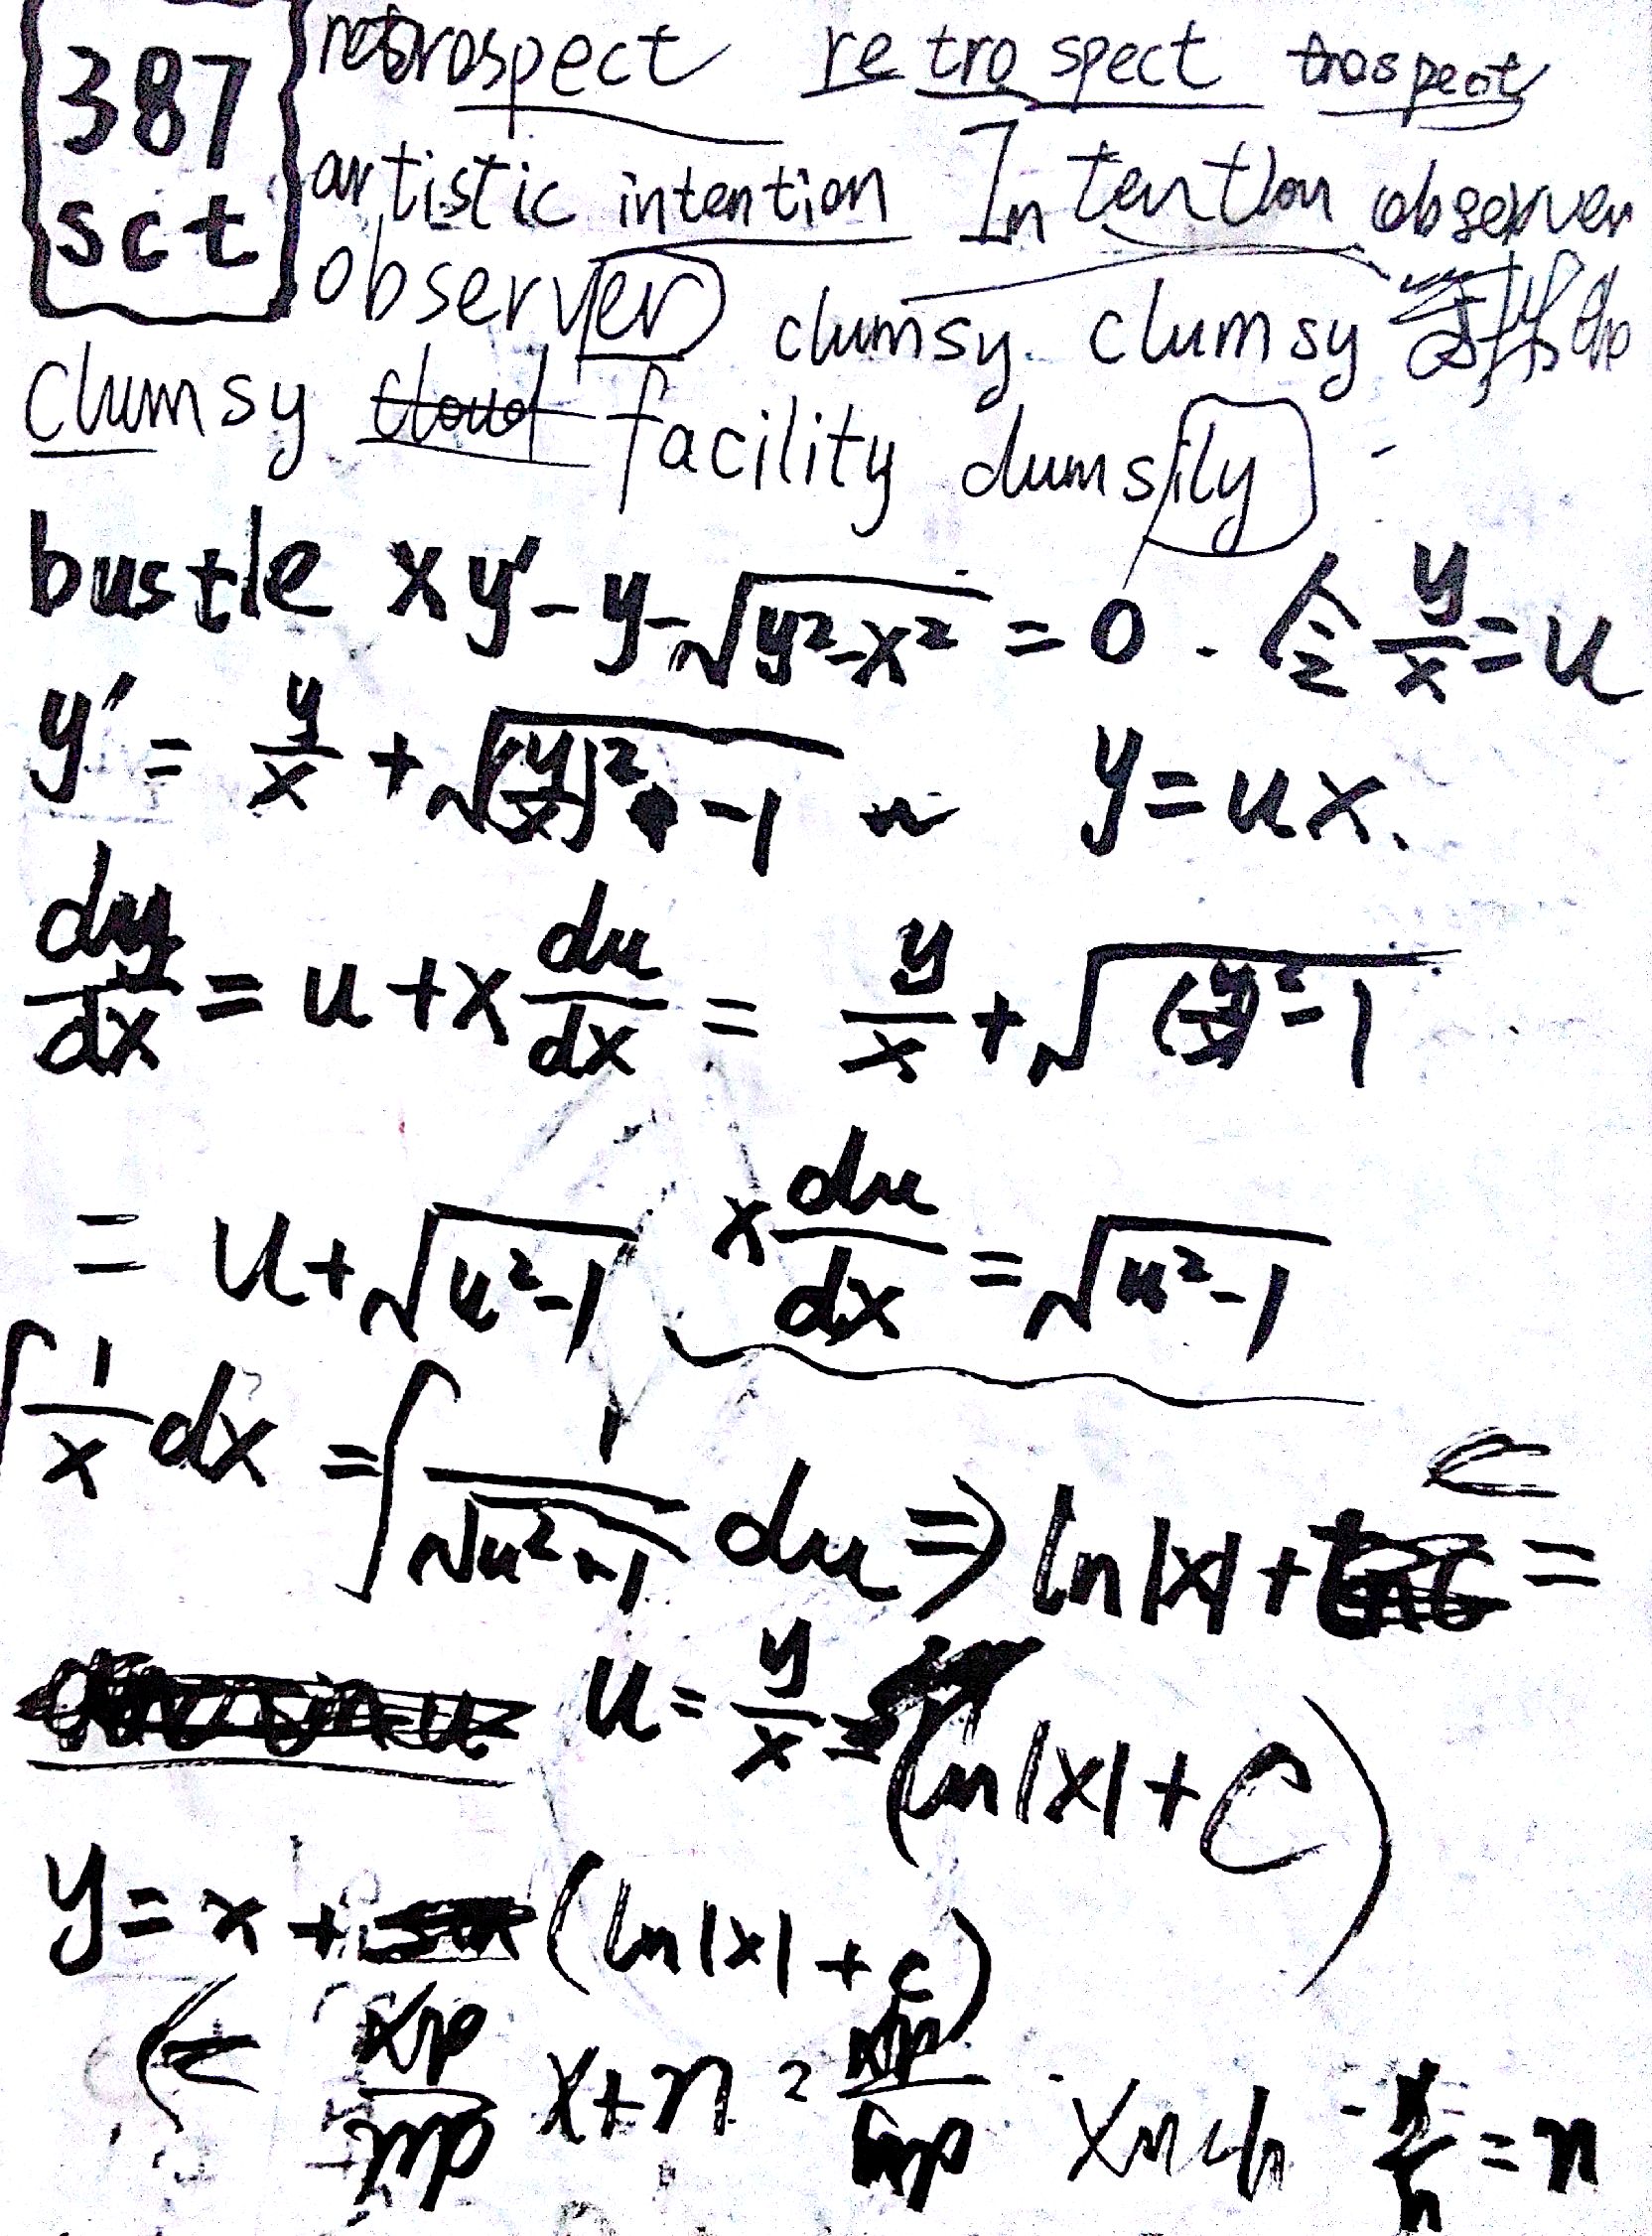 387
sct
retrospect retrospect trospect
artistic intention Intention observer
observer clumsy. clumsy
clumsy cloud facility clumsily
bustle xy'-y-√(y²-x²) = 0. 令 y/x = u
y' = y/x + √((y/x)²-1) y = ux.
dy/dx = u + x du/dx = y/x + √((y/x)²-1)
= u + √(u²-1) x du/dx = √(u²-1)
∫ 1/x dx = ∫ 1/√(u²-1) du ⇒ ln|x| + =
u = y/x = (ln|x| + C)
y = x + (ln|x| + c)
u = y/x y = ux